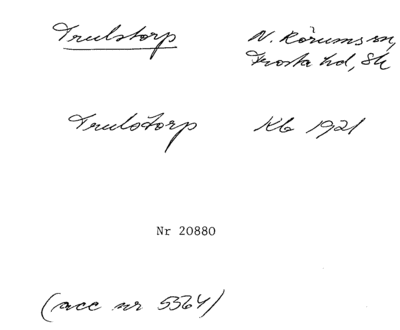 Trulstorp N. Rörums sn,
Frosta hd, Sk
Trulstorp Kb 1921
Nr 20880
(acc nr 5364)